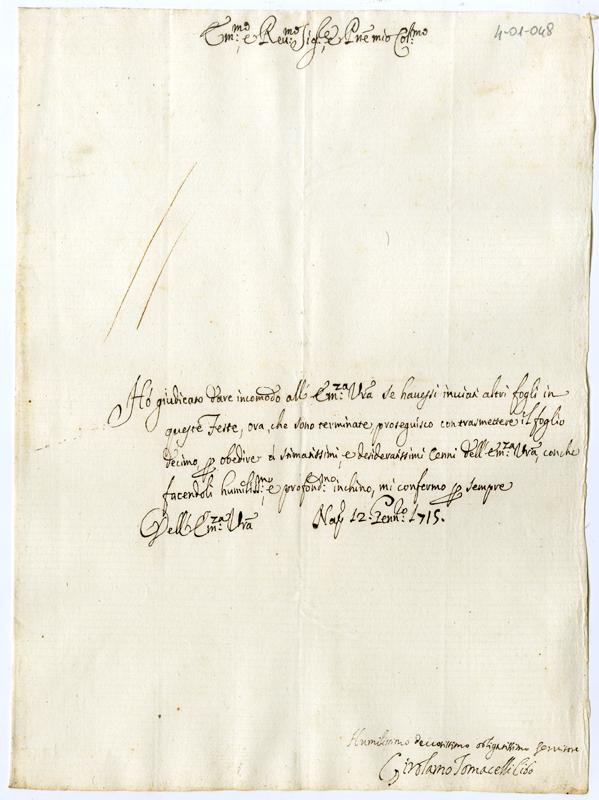 4-01-048
Em:mo e Reu:mo Sig:re e Prĕne mio Col:mo
Hò giudicato dare incomodo all' Em:za Vrā se hauessi inuiati altri fogli in
queste Feste, ora, che sono terminate, proseguisco con trasmettere il foglio
decimo p obedire a' stimatissimi, e desideratissimi Cenni dell' Em:za Vrā, con che
facendoli humiliss:mo e profond:mo inchino, mi confermo p sempre
Dell' Em:za Vrā Nap 12: Genn:o 1715.
Humilissimo deuotissimo obligatissimo seruitore
Girolamo Tomacelli Cibo